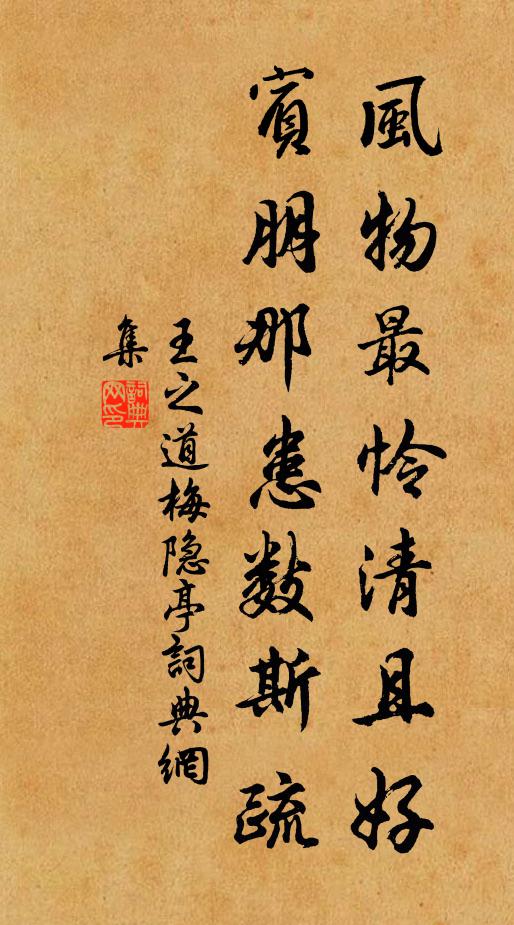 風物最怜清且好
賓朋那患數斯疏
王之道梅隐亭詞典網
集
詞典網印